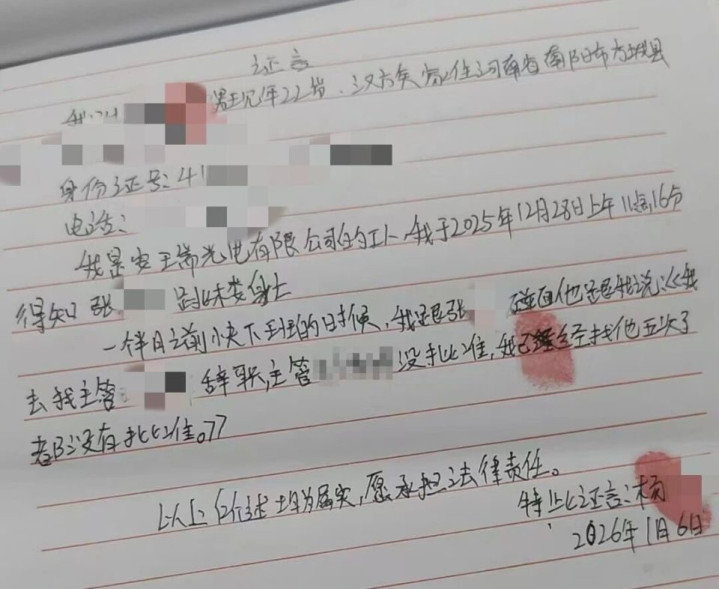 证言
男现年22岁，汉族家住河南省南阳市方城县
身份证号:41
电话:
我是安王常光电有限公司的工人,我于2025年12月28日上午11点16分
得知张 跳楼身亡
一件日之前小夹下班的时候,我跟张 碰面他还跟我说:《我
去找主管 辞职,主管 没批准,我已经找他五次了
都没有批准。》
以上 所述均为属实,愿承担法律责任。
特此证言:杨
2026年1月6日